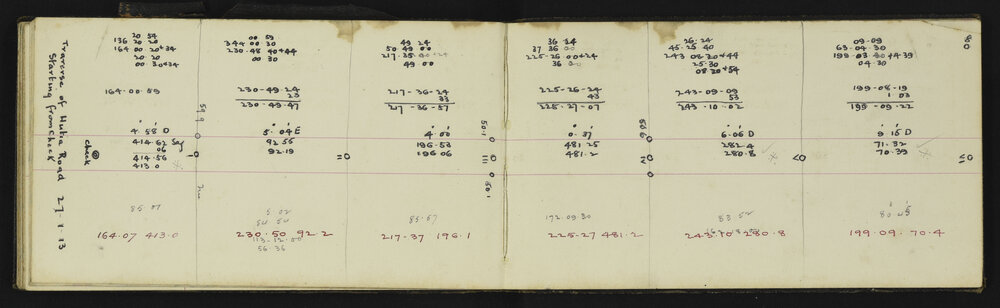 Traverse of Hutia Road 27.1.13
Starting from Check
20 54
136 20 20
164 00 20+34
20 20
00 30+34
164.00.59
4.58 D
414.62 Say
06
414.56
413.0
Check
85.07
164.07 413.0
00 59
344 00 30
230.48 40+44
00 30
230-49-24
23
230.49.47
5.04 E
92 56
92.19
5 02
230.50 92.2
113-12.00
56.36
49 24
50 49 00
49 00
217-36-24
33
217-36-57
4.00
196.53
196 06
83.67
217-37 196.1
501
501
36 34
37 36 00
225-26 00+24
36 00
225-26-24
43
225-27-07
0.37
481.25
481.2
172.09.30
225-27 481.2
26.24
45.25 40
243 08 20+44
25.30
08 20+54
243-09-09
53
243-10.02
6.06 D
282.4
280.8
83 52
280.8
09-09
63.04.30
04.30
199-08-19
1 03
199-09.22
9 15 D
71.32
70.39
199.09. 70.4